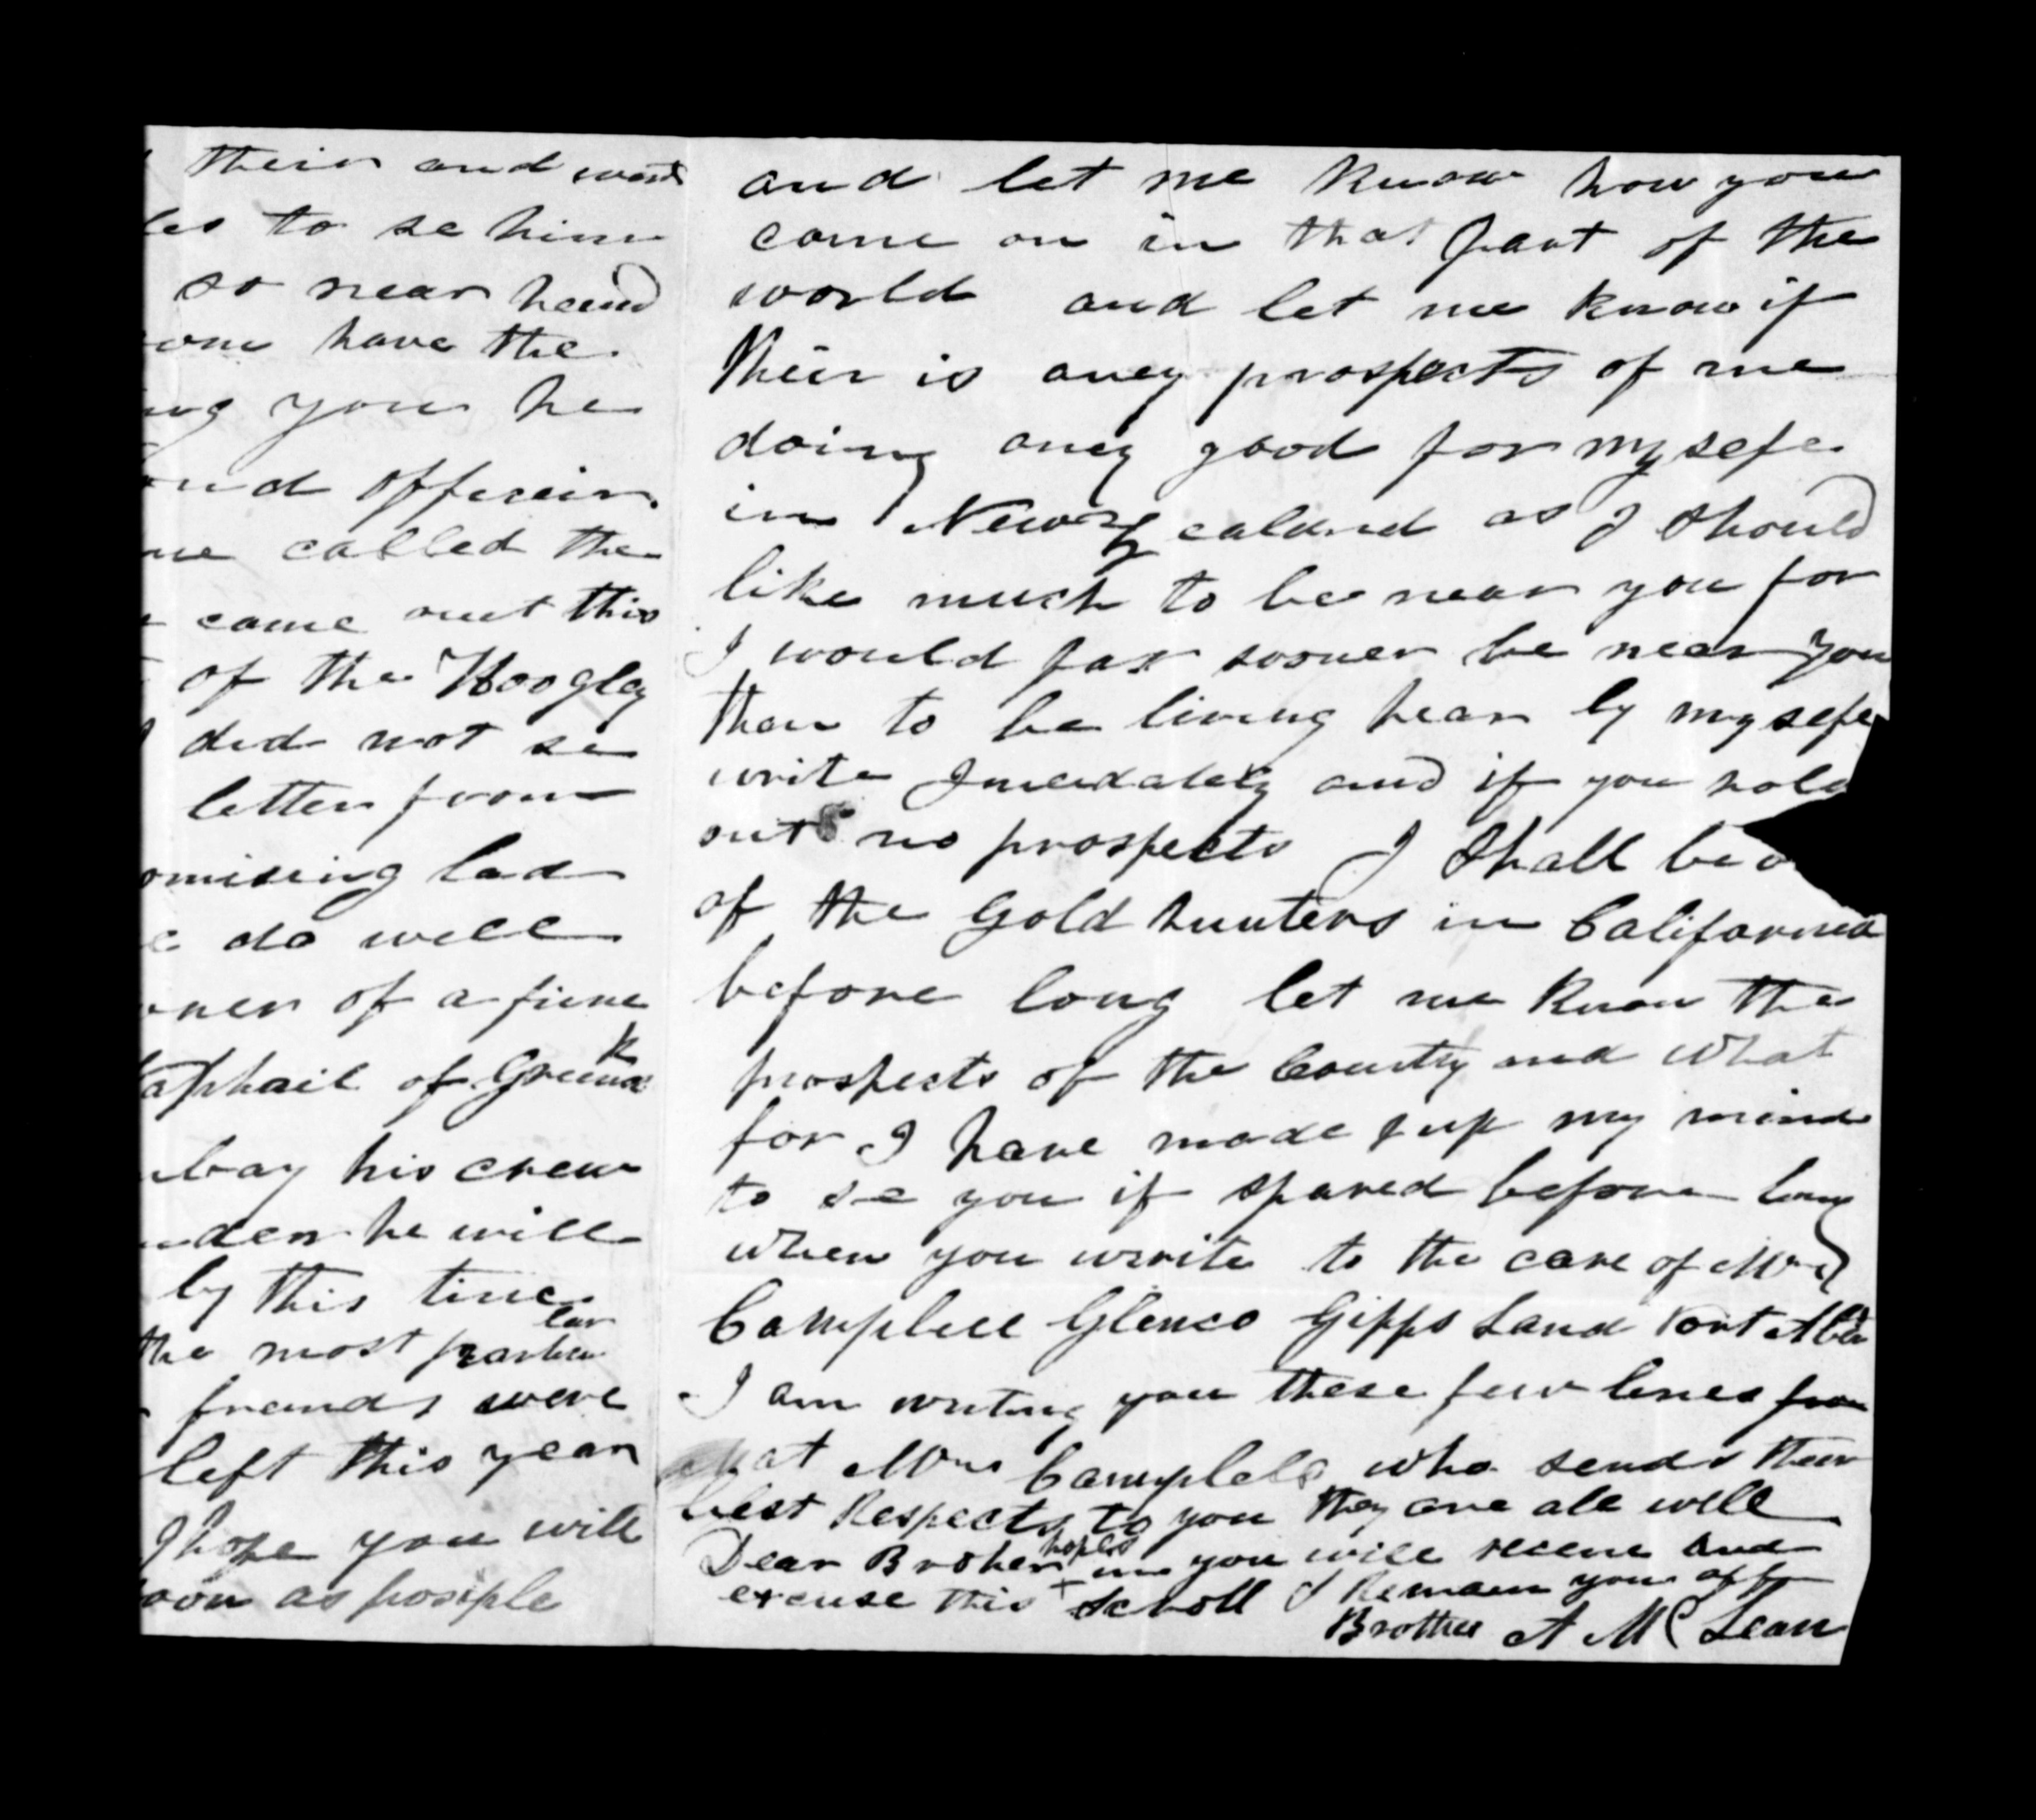 their and went
les to se him
so near hand
have the
ng you he
and officeir
me called the
came out this
of the Hoogley
did not se
letter from
omising lad
do well
ner of a fine
aphail of Greenock
bay his crew
den he will
by this time
the most particular
friends were
left this year
I hope you will
oon as posiple
and let me know how you
come on in that part of the
world and let me know if
their is aney prospects of me
doing aney good for my sefe
in New Zealand as I should
like much to be near you for
I would far sooner be near you
than to be living hear by my sefe
write Imedately and if you hold
out no prospects I shall be o
of the Gold hunters in California
before long let me know the
prospects of the Country and what
for I have made up my mind
to se you if spared before long
when you write to the care of Mrs
Campbell Glenco Gipps Land Port Albt
I am writing you these few lines from
at Mrs Campbels who sends their
best Respects to you they are all well
Dear Brother hopes you will receve and
excuse this scroll I Remain your aft
Brother A McLean